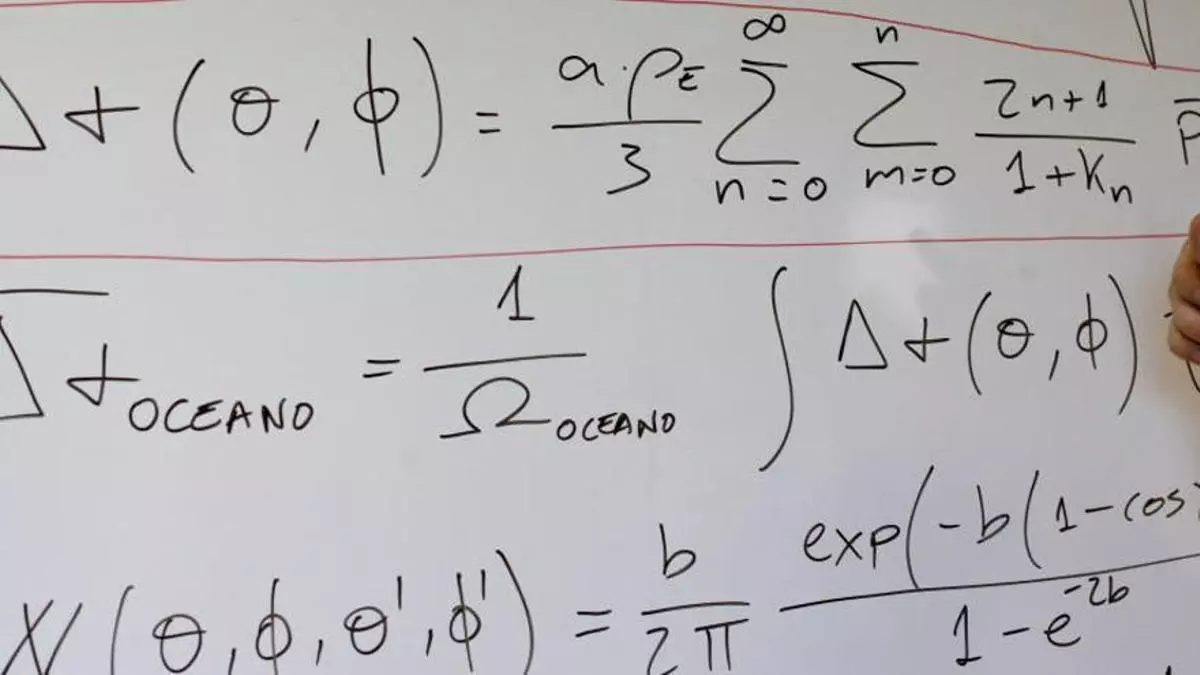 Δ+(θ,ϕ) = a·ρ_E/3 ∑_{n=0}^{∞} ∑_{m=0}^{n} 2n+1/1+K_n P̅
Δ+_OCEANO = 1/Ω_OCEANO ∫ Δ+(θ,ϕ)
W(θ,ϕ,θ',ϕ') = b/2π exp(-b(1-cos/1-e^{-2b}